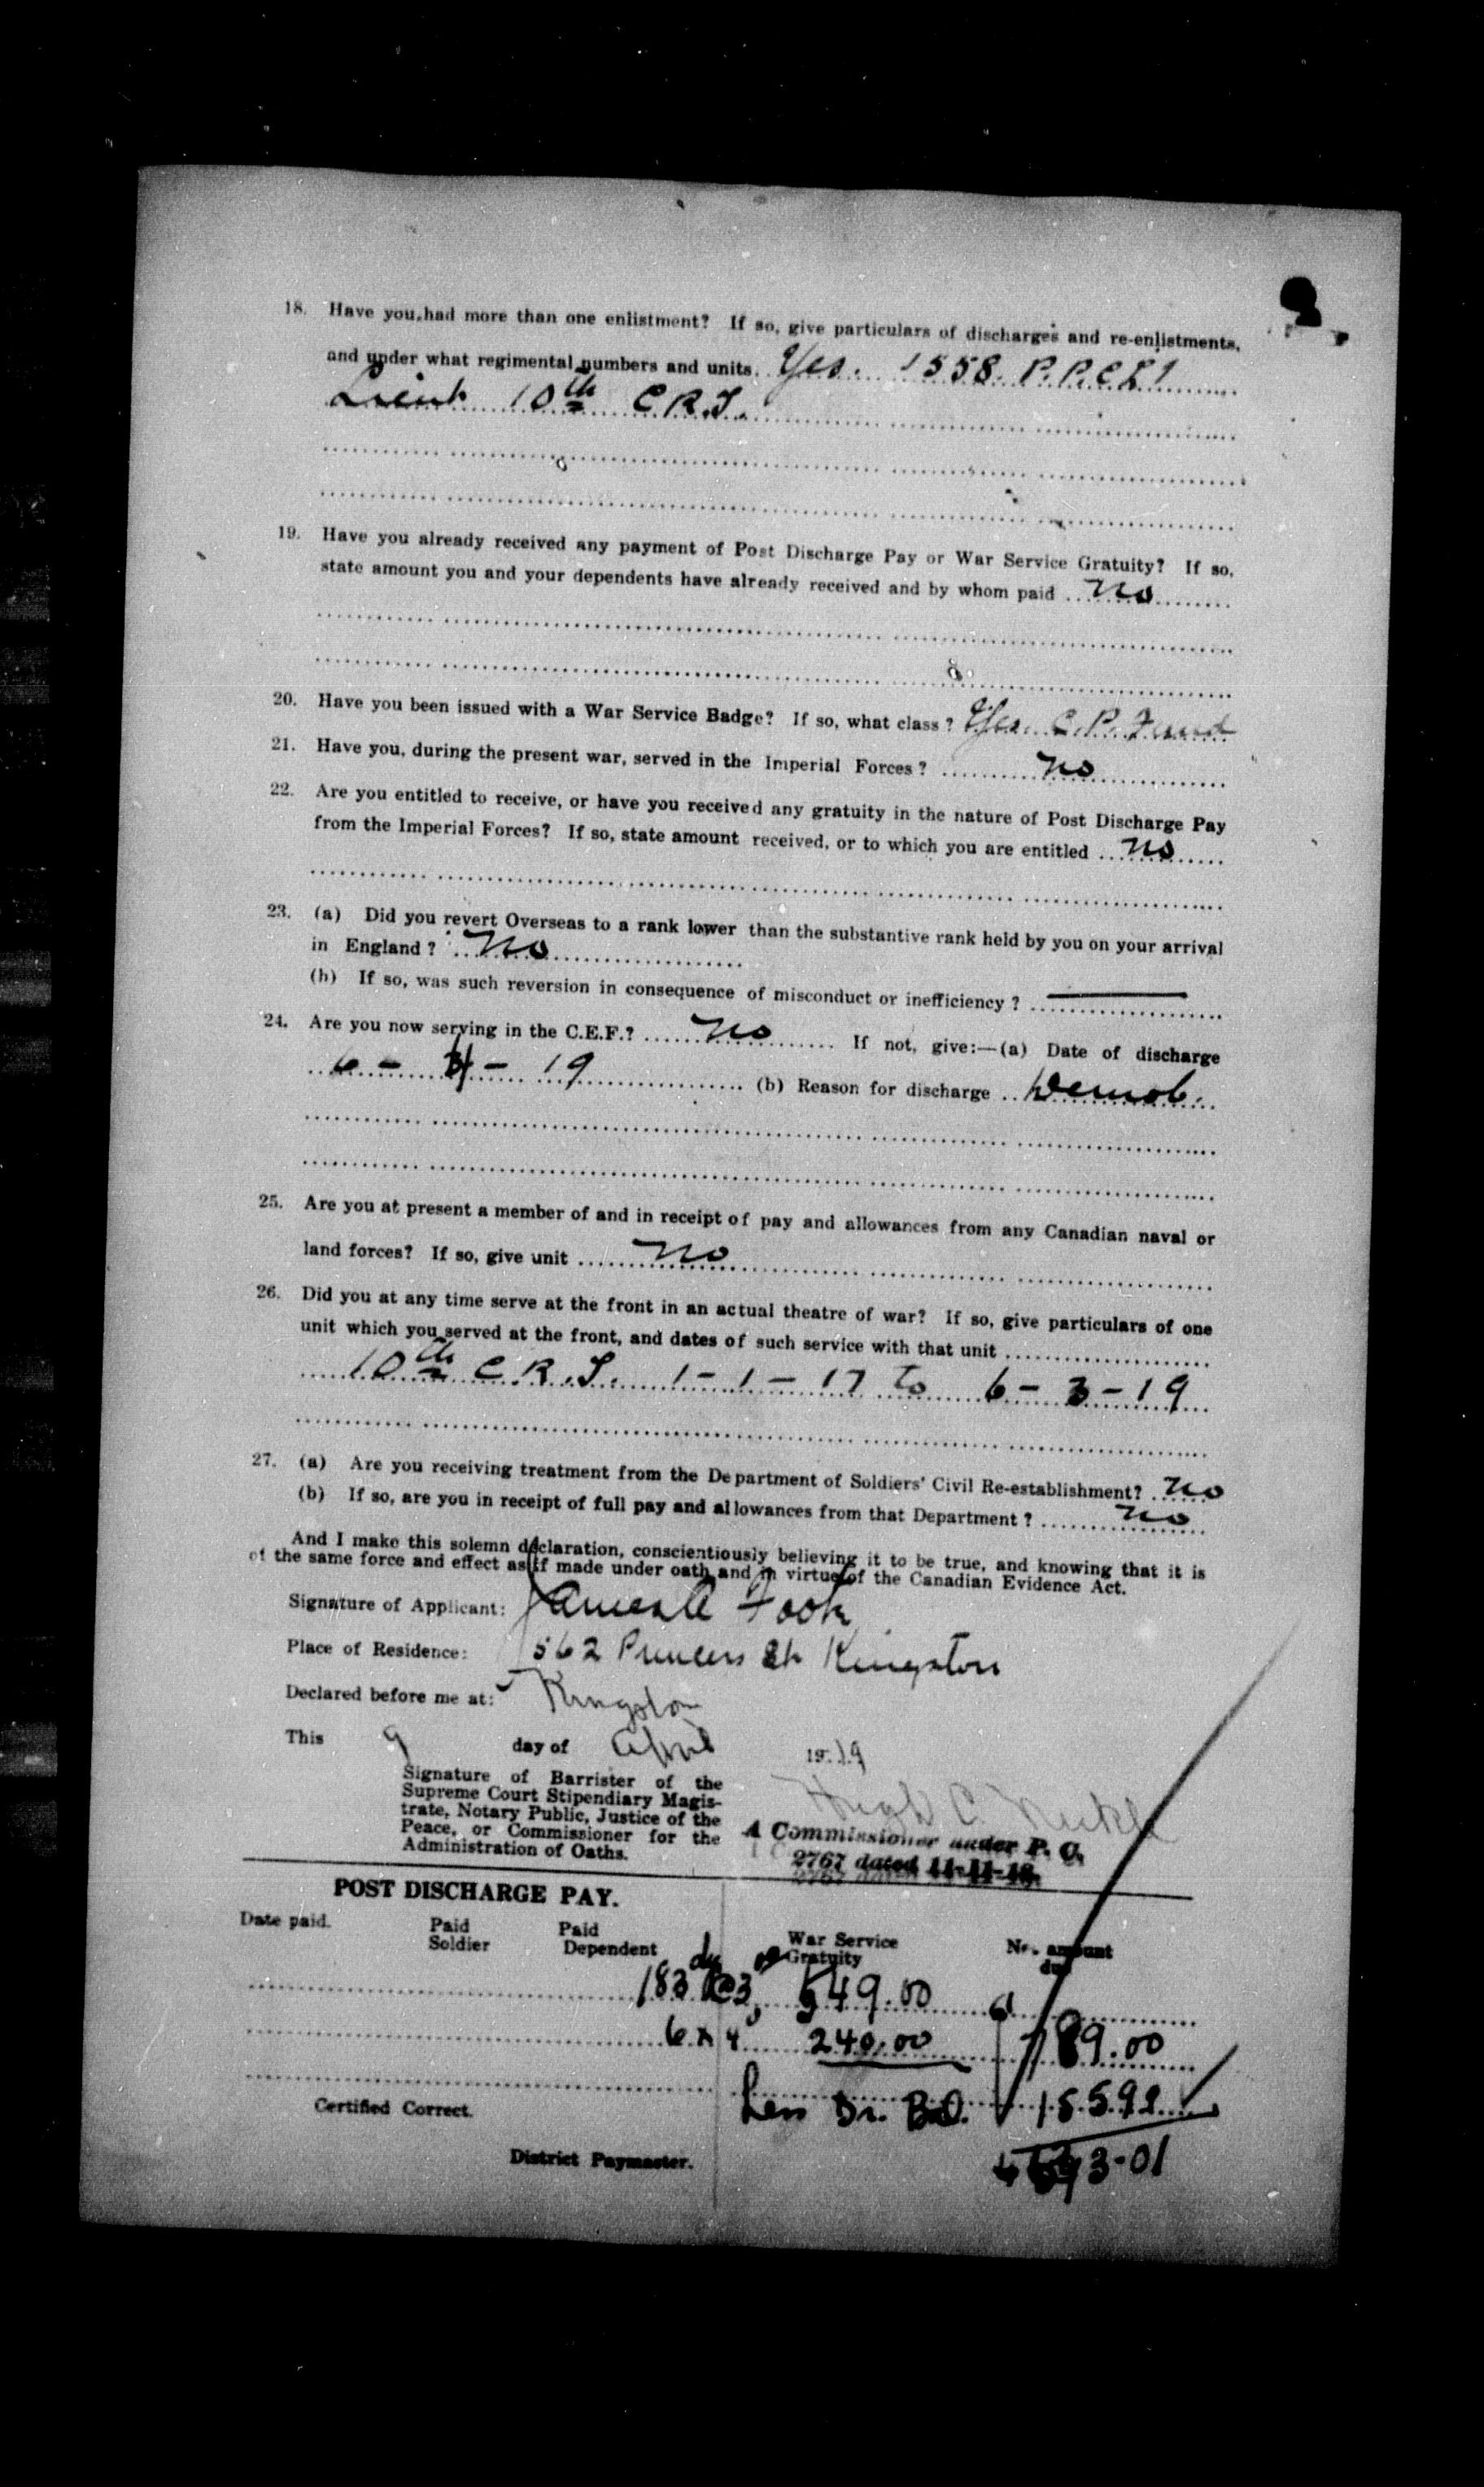 18. Have you had more than one enlistment? If so, give particulars of discharges and re-enlistments,
and under what regimental numbers and units. Yes. 1558. P.P.C.L.I
Lieut 10th C.R.T.
19. Have you already received any payment of Post Discharge Pay or War Service Gratuity? If so,
state amount you and your dependents have already received and by whom paid No
20. Have you been issued with a War Service Badge? If so, what class? Yes. C.P.
21. Have you, during the present war, served in the Imperial Forces? No
22. Are you entitled to receive, or have you received any gratuity in the nature of Post Discharge Pay
from the Imperial Forces? If so, state amount received, or to which you are entitled No
23. (a) Did you revert Overseas to a rank lower than the substantive rank held by you on your arrival
in England? No
(b) If so, was such reversion in consequence of misconduct or inefficiency? ——
24. Are you now serving in the C.E.F.? No If not, give:—(a) Date of discharge
6 - - 19 (b) Reason for discharge Demob.
25. Are you at present a member of and in receipt of pay and allowances from any Canadian naval or
land forces? If so, give unit No
26. Did you at any time serve at the front in an actual theatre of war? If so, give particulars of one
unit which you served at the front, and dates of such service with that unit
10th C.R.T. 1 - 1 - 17 to 6 - 3 - 19
27. (a) Are you receiving treatment from the Department of Soldiers' Civil Re-establishment? No
(b) If so, are you in receipt of full pay and allowances from that Department? No
And I make this solemn declaration, conscientiously believing it to be true, and knowing that it is
of the same force and effect as if made under oath and in virtue of the Canadian Evidence Act.
Signature of Applicant: James
Place of Residence: 562 Princess St Kingston
Declared before me at: Kingston
This 9 day of April 19 19
Signature of Barrister of the
Supreme Court Stipendiary Magis-
trate, Notary Public, Justice of the
Peace, or Commissioner for the
Administration of Oaths.
Hugh C. Nickle
A Commissioner under P. C.
2767 dated 11-11-18.
POST DISCHARGE PAY.
Date paid. Paid Soldier Paid Dependent War Service Gratuity Net amount due
183 dys @ 3 00 549.00
6 x 40 240.00 789.00
Less Dr. Bal. 155 99
3-01
Certified Correct.
District Paymaster.